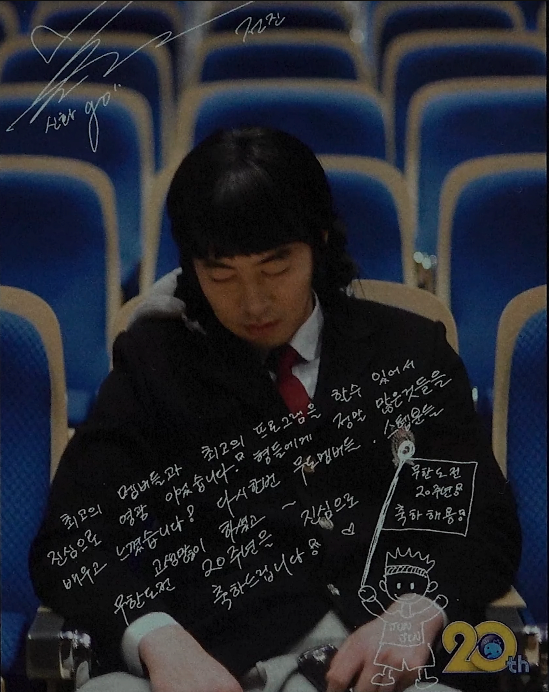 전진
신화 go!!
최고의 멤버들과 최고의 프로그램을 할수 있어서
진심으로 영광 이었습니다! 형들에게 정말 많은것들을
배우고 느꼈습니다! 다시한번 무도멤버들, 스텝분들
고생많이 하셨고 ~ 진심으로
무한도전 20주년을
축하드립니다!
무한도전
20주년
축하해용
JUN
JIN
20th